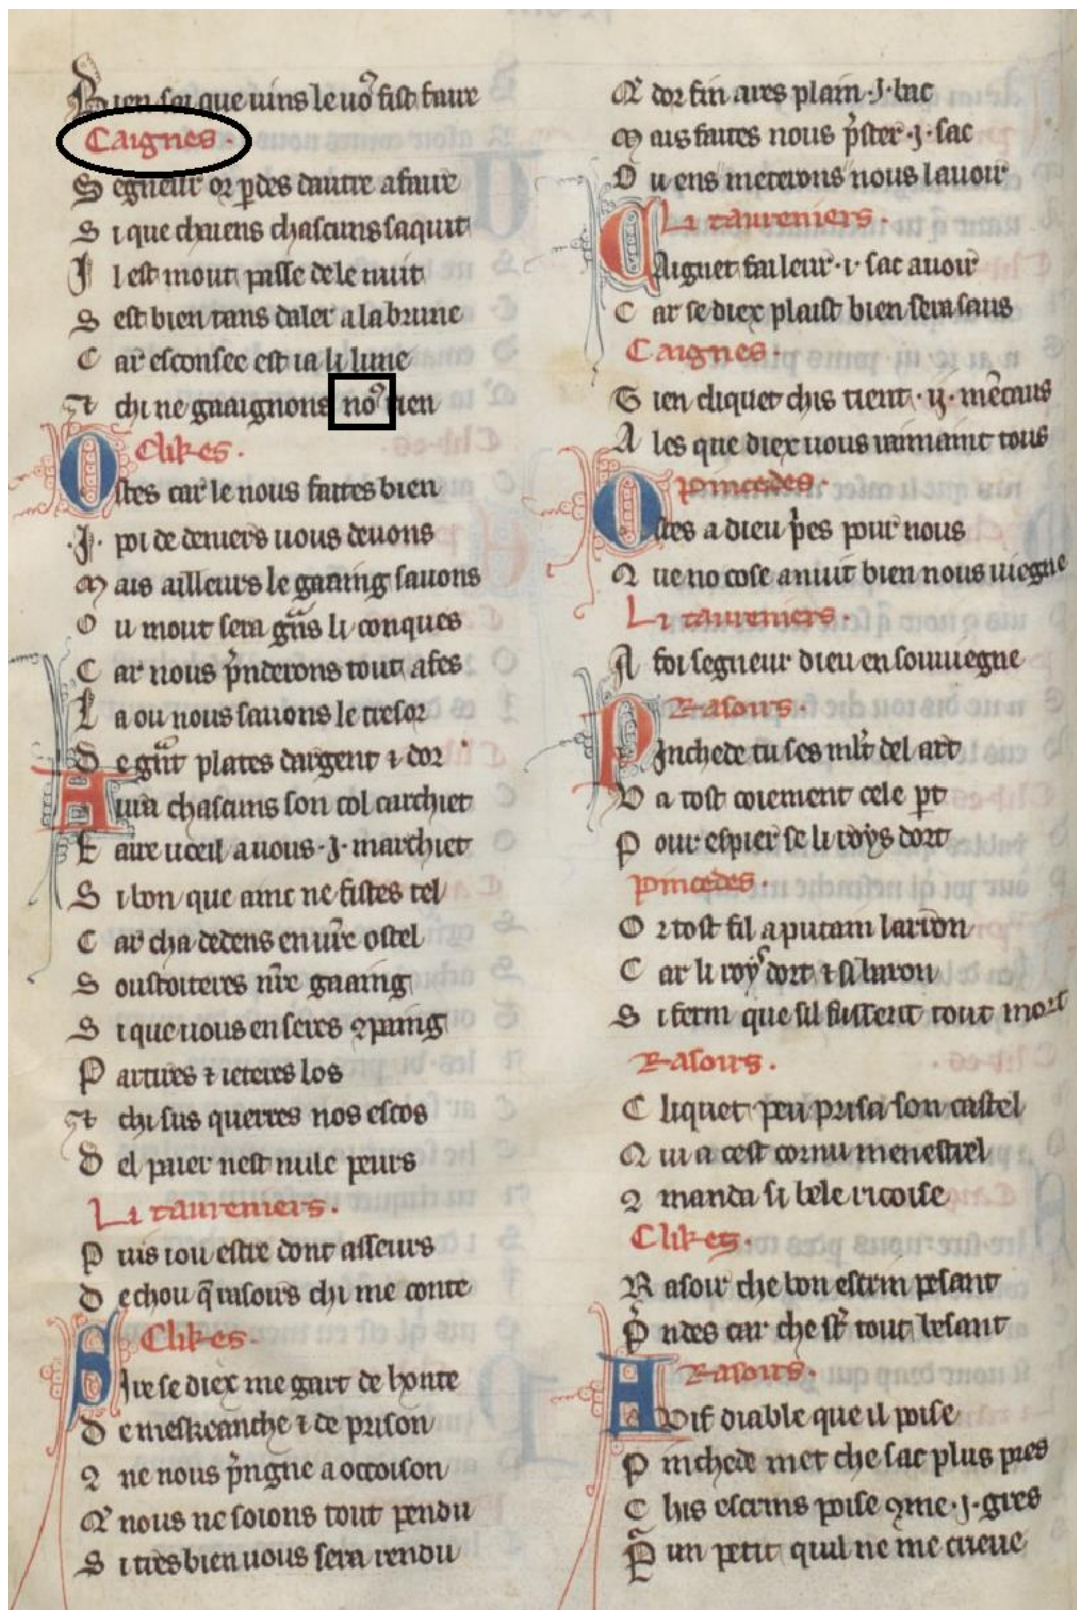 Bien sai que vins le vo9 fist faire
Caignes.
Segneur or pdes dautre afaire
Si que chaiens chascuns saquit
Il est mout passe de le nuit
Sest bien tans daler a la brune
Car esconsee est ia li lune
Et chi ne gaaignons no9 rien
Clikes.
Ostes car le nous faites bien
.I. poi de deniers vous devons
Mais ailleurs le gaaing savons
Ou mout sera gns li conques
Car nous pnderons tout a fes
La ou nous savons le tresor
De gnt plates dargent ⁊ dor
Aura chascuns son col carchiet
Faire vœil a vous .I. marchiet
Si bon que ainc ne fistes tel
Car cha dedens en vre ostel
Soustoiteres nre gaaing
Si que vous en seres ꝯpaing
Partires ⁊ ieteres los
Et chi sus querres nos escos
Del paier nest nule peurs
Li taureniers.
Puis iou estre dont asseurs
De chou q̄ rasoirs chi me conte
Clikes.
Sire se diex me gart de honte
De meskeanche ⁊ de prison
ꝯ ne nous pngne a occoison
Q nous ne soions tout pendu
Si tres bien vous sera rendu
Q dor fin ares plain .I. bac
Mais faites nous pster .I. sac
Ou ens meterons nous lavoir
Li taureniers.
Caignet fai leur .i. sac avoir
Car se diex plaist bien sera saus
Caignes.
Tien cliquet chis tient .ij. mēcaus
Ales que diex vous ramaint tous
Pincedes.
Ostes a dieu pes pour nous
Que no cose anuit bien nous viegne
Li taureniers.
A foi segneur dieu en souviegne
Rasours.
Pinchede tu ses mlt del art
Va tost coiement cele pt
Pour espier se li roys dort
Pincedes.
Or tost fil a putain larron
Car li roys dort ⁊ si baron
Si ferm que sil fussent tout mort
Rasours.
Cliquet peu prisa son castel
Qui a cest cornu menestrel
ꝯmanda si bele ricoise
Clikes.
Rasoir che bon escrin pesant
Pndes car che st tout besant
Rasours.
Voif diable que il poise
Pinchede met che sac plus pres
Chis escrins poise ꝯme .I. gres
P un petit quil ne me crieve